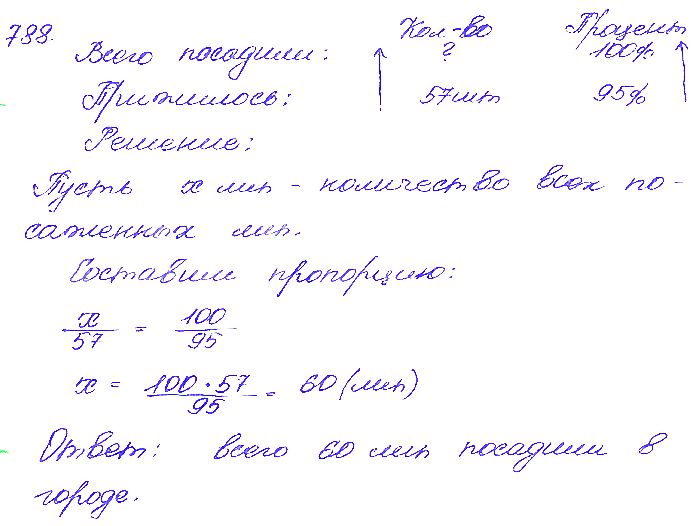 788. Кол-во Процент
Всего посадили: ? 100%
Прижилось: 57шт 95%
Решение:
Пусть x лип - количество всех по-
саженных лип.
Составим пропорцию:
x/57 = 100/95
x = 100·57/95 = 60 (лип)
Ответ: всего 60 лип посадили в
городе.